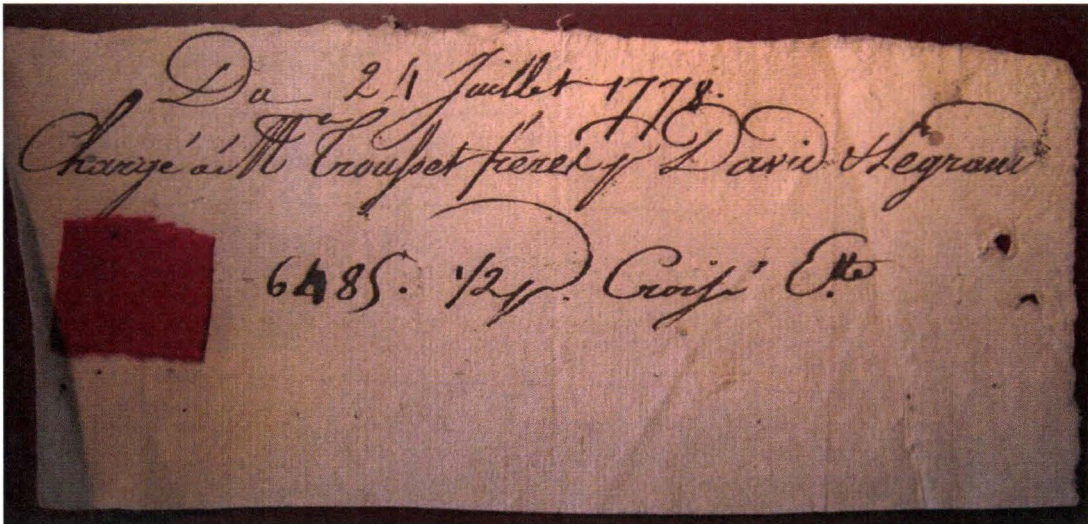 Du 24 Juillet 1778.
Chargé à Mrs Trousset freres pr David & Legrand
6485. 1/2 p. Croisé Ette